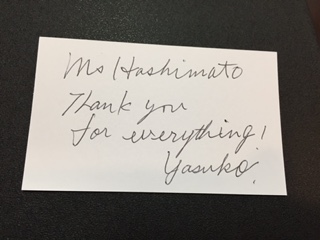 Ms Hashimato
Thank you
for everything!
Yasuko.